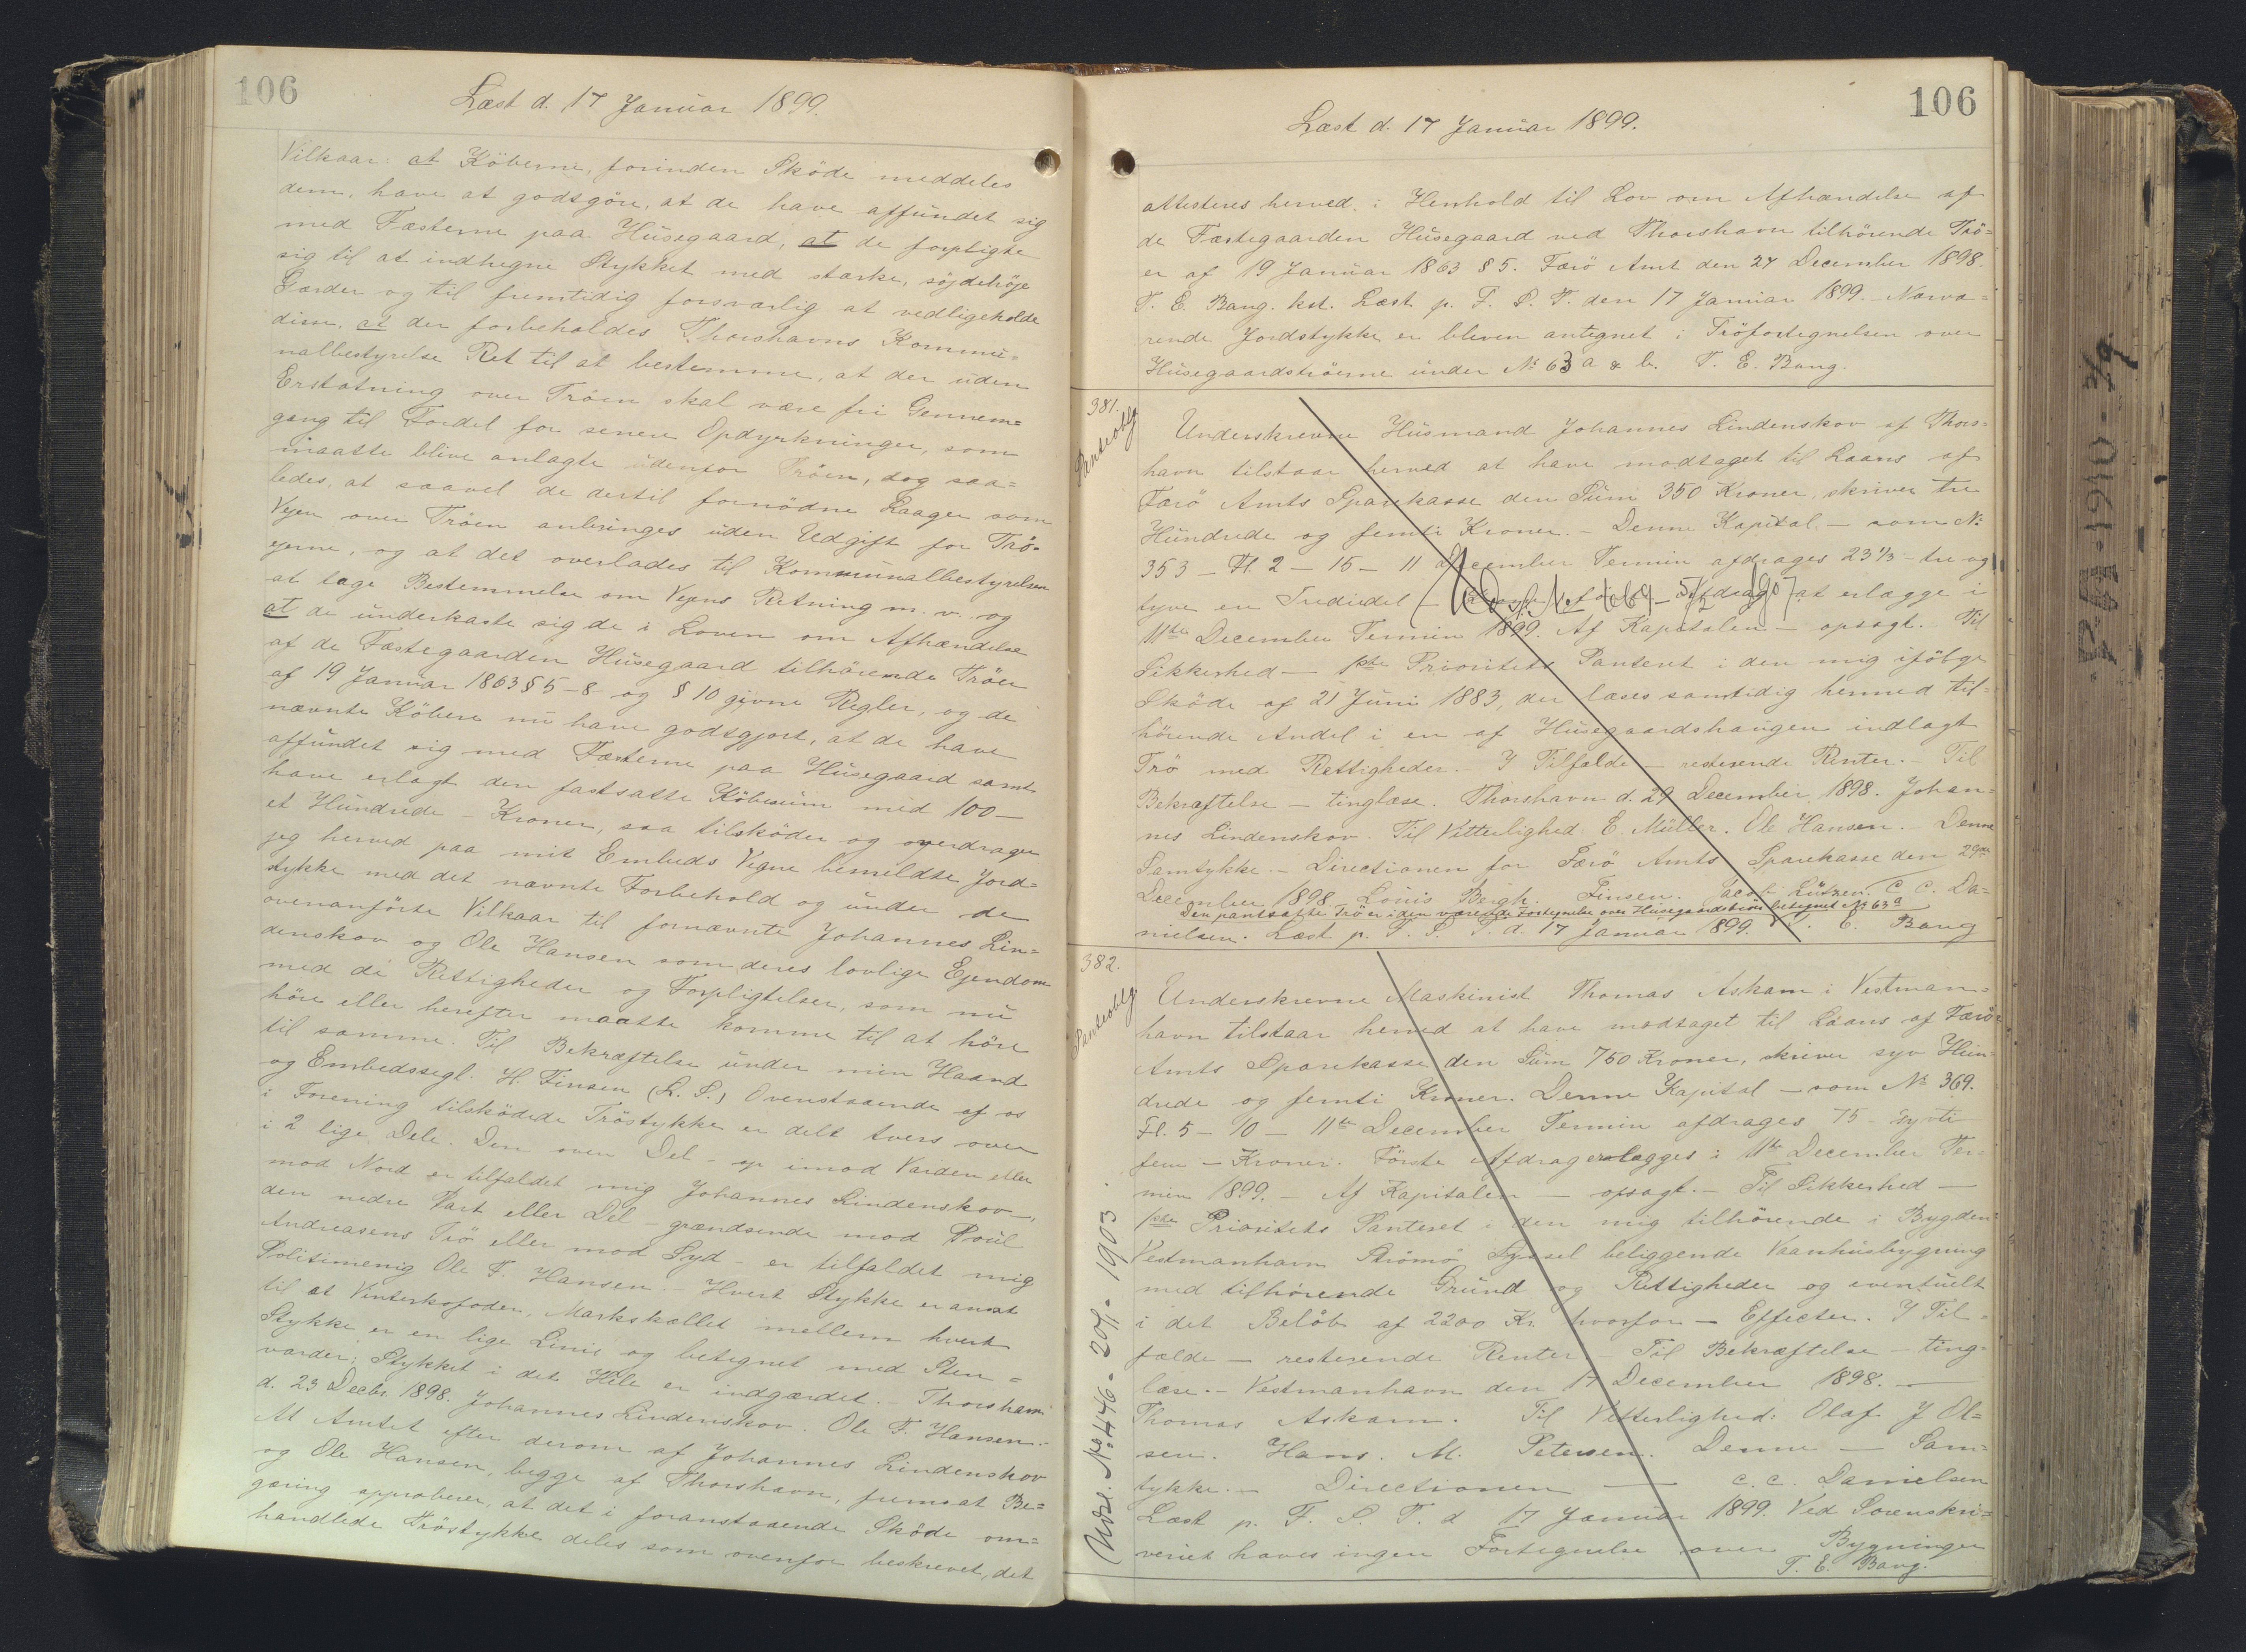 106
Læst d. 17 Januar 1899.
Vilkaar: at Köberne, forinden Sköde meddeles
dem, have at godtgöre, at de have affundet sig
med Fæsterne paa Húsegaard, at de forpligte
sig til at indhegne Stykket med stærke, söjdehöje
Gærder og til fremtidig forsvarlig at vedligeholde
disse, at der forbeholdes Thorshavns Kommu=
nalbestyrelse Ret til at bestemme, at der uden
Erstatning over Tröen skal være fri Gennem=
gang til Fordel for senere Opdyrkninger, som
maatte blive anlagte udenfor Tröen, dog saa=
ledes, at saavel de dertil fornödne Laager som
Vejen over Tröen anbringes uden Udgift for Trö=
ejerne, og at det overlades til Kommunalbestyrelsen
at tage Bestemmelse om Vejens Retning m. v. og
at de underkaste sig de i Loven om Afhændelse
af de Fæstegaarden Húsegaard tilhörende Tröer
af 19 Januar 1863 § 5-8 og § 10 givne Regler, og de
nævnte Köbere nu have godtgjort, at de have
affundet sig med Fæsterne paa Húsegaard samt
have erlagt den fastsatte Köbesum med 100 —
et Hundrede — Kroner, saa tilsköder og overdrager
jeg herved paa mit Embeds Vegne bemeldte Jord=
stykke med det nævnte Forbehold og under de
ovenanförte Vilkaar til fornævnte Johannes Lin=
denskov og Ole Hansen som deres lovlige Ejendom
med de Rettigheder og Forpligtelser, som nu
höre eller herefter maatte komme til at höre
til samme. Til Bekræftelse under min Haand
og Embedssegl. H. Finsen (L. S.) Ovenstaaende af os
i Forening tilsködede Tröstykke er delt tvers over
i 2 lige Dele. Den oven Del — op imod Varden eller
mod Nord er tilfaldet mig Johannes Lindenskov,
den nedre Part eller Del — grændsende mod Poul
Andreasens Trö eller mod Syd — er tilfaldet mig
Politimenig Ole F. Hansen. — Hvert Stykke er ansat
til at Vinterkofoder. Markskællet mellem hvert
Stykke er en lige Linie og betegnet med Sten=
varder; Stykket i det Hele er indgærdet. — Thorshavn
d. 23 Decbr. 1898. Johannes Lindenskov. Ole F. Hansen. —
At Amtet efter derom af Johannes Lindenskov
og Ole Hansen, begge af Thorshavn, fremsat Be=
gæring approberer, at det i foranstaaende Sköde om=
handlede Tröstykke deles som ovenfor beskrevet, det
106
Læst d. 17 Januar 1899.
attesteres herved i Henhold til Lov om Afhændelse af
de Fæstegaarden Húsegaard ved Thorshavn tilhörende Trö=
er af 19 Januar 1863 § 5. Færö Amt den 24 December 1898.
T. E. Bang. kst. Læst p. F. S. T. den 17 Januar 1899. Nærvæ=
rende Jordstykke er bleven antegnet i Tröfortegnelsen over
Húsegaardströerne under No 63 a & b. T. E. Bang.
381.
Panteoblg
Underskrevne Husmand Johannes Lindenskov af Thors=
havn tilstaar herved at have modtaget til Laans af
Færö Amts Sparekasse den Sum 350 Kroner, skriver tre
Hundrede og femti Kroner. — Denne Kapital — som No
353 — Fl. 2 — 15 — 11 December Termin afdrages 23 1/3 — tre og
tyve en Trediedel — Afdrag at erlægge i
11te December Termin 1899. Af Kapitalen — opsagt. Til
Sikkerhed — 1ste Prioritets Panteret i den mig ifölge
Sköde af 21 Juni 1883, der læses samtidig hermed til=
hörende Andel i en af Húsegaardshaugen indlagt
Trö med Rettigheder. — I Tilfælde — resterende Renter. — Til
Bekræftelse — tinglæse. Thorshavn d. 29 December 1898. Johan=
nes Lindenskov. Til Vitterlighed: E. Müller. Ole Hansen. Denne
Samtykke. — Directionen for Færö Amts Sparekasse den 29de
December 1898. Louis Bergh. Finsen. Jacob Lützen. C. C. Da=
Den pantsatte Trö er i den værende Fortegnelse over Húsegaardströer betegnet No 63 a
nielsen. Læst p. F. S. T. d. 17 Januar 1899. T. E. Bang
382.
Panteoblg
Underskrevne Maskinist Thomas Askam i Vestman=
havn tilstaar herved at have modtaget til Laans af Færö
Amts Sparekasse den Sum 750 Kroner, skriver syv Hun=
drede og femti Kroner. Denne Kapital — som No 369.
Fl. 5 — 10 — 11te December Termin afdrages 75 — syvti
fem — Kroner. Förste Afdrag erlægges i 11te December Ter=
min 1899. — Af Kapitalen — opsagt. — Til Sikkerhed —
1ste Prioritets Panteret i den mig tilhörende i Bygden
Vestmanhavn Strömö Syssel beliggende Vaanhusbygning
med tilhörende Grund og Rettigheder og eventuelt
i det Belöb af 2200 Kr. hvorfor — Effecter. I Til=
fælde — resterende Renter — Til Bekræftelse — ting=
læse. — Vestmanhavn den 17 December 1898. —
Thomas Askam. Til Vitterlighed: Olaf J Ol=
sen. Hans. M. Petersen. Denne — Sam=
tykke. — Directionen — C. C. Danielsen
Læst p. F. S. T. d 17 Januar 1899. Ved Sorenskri=
veriet haves ingen Fortegnelse over Bygninger
T. E. Bang.
Udsl. No 446 - 20/1 - 1903.